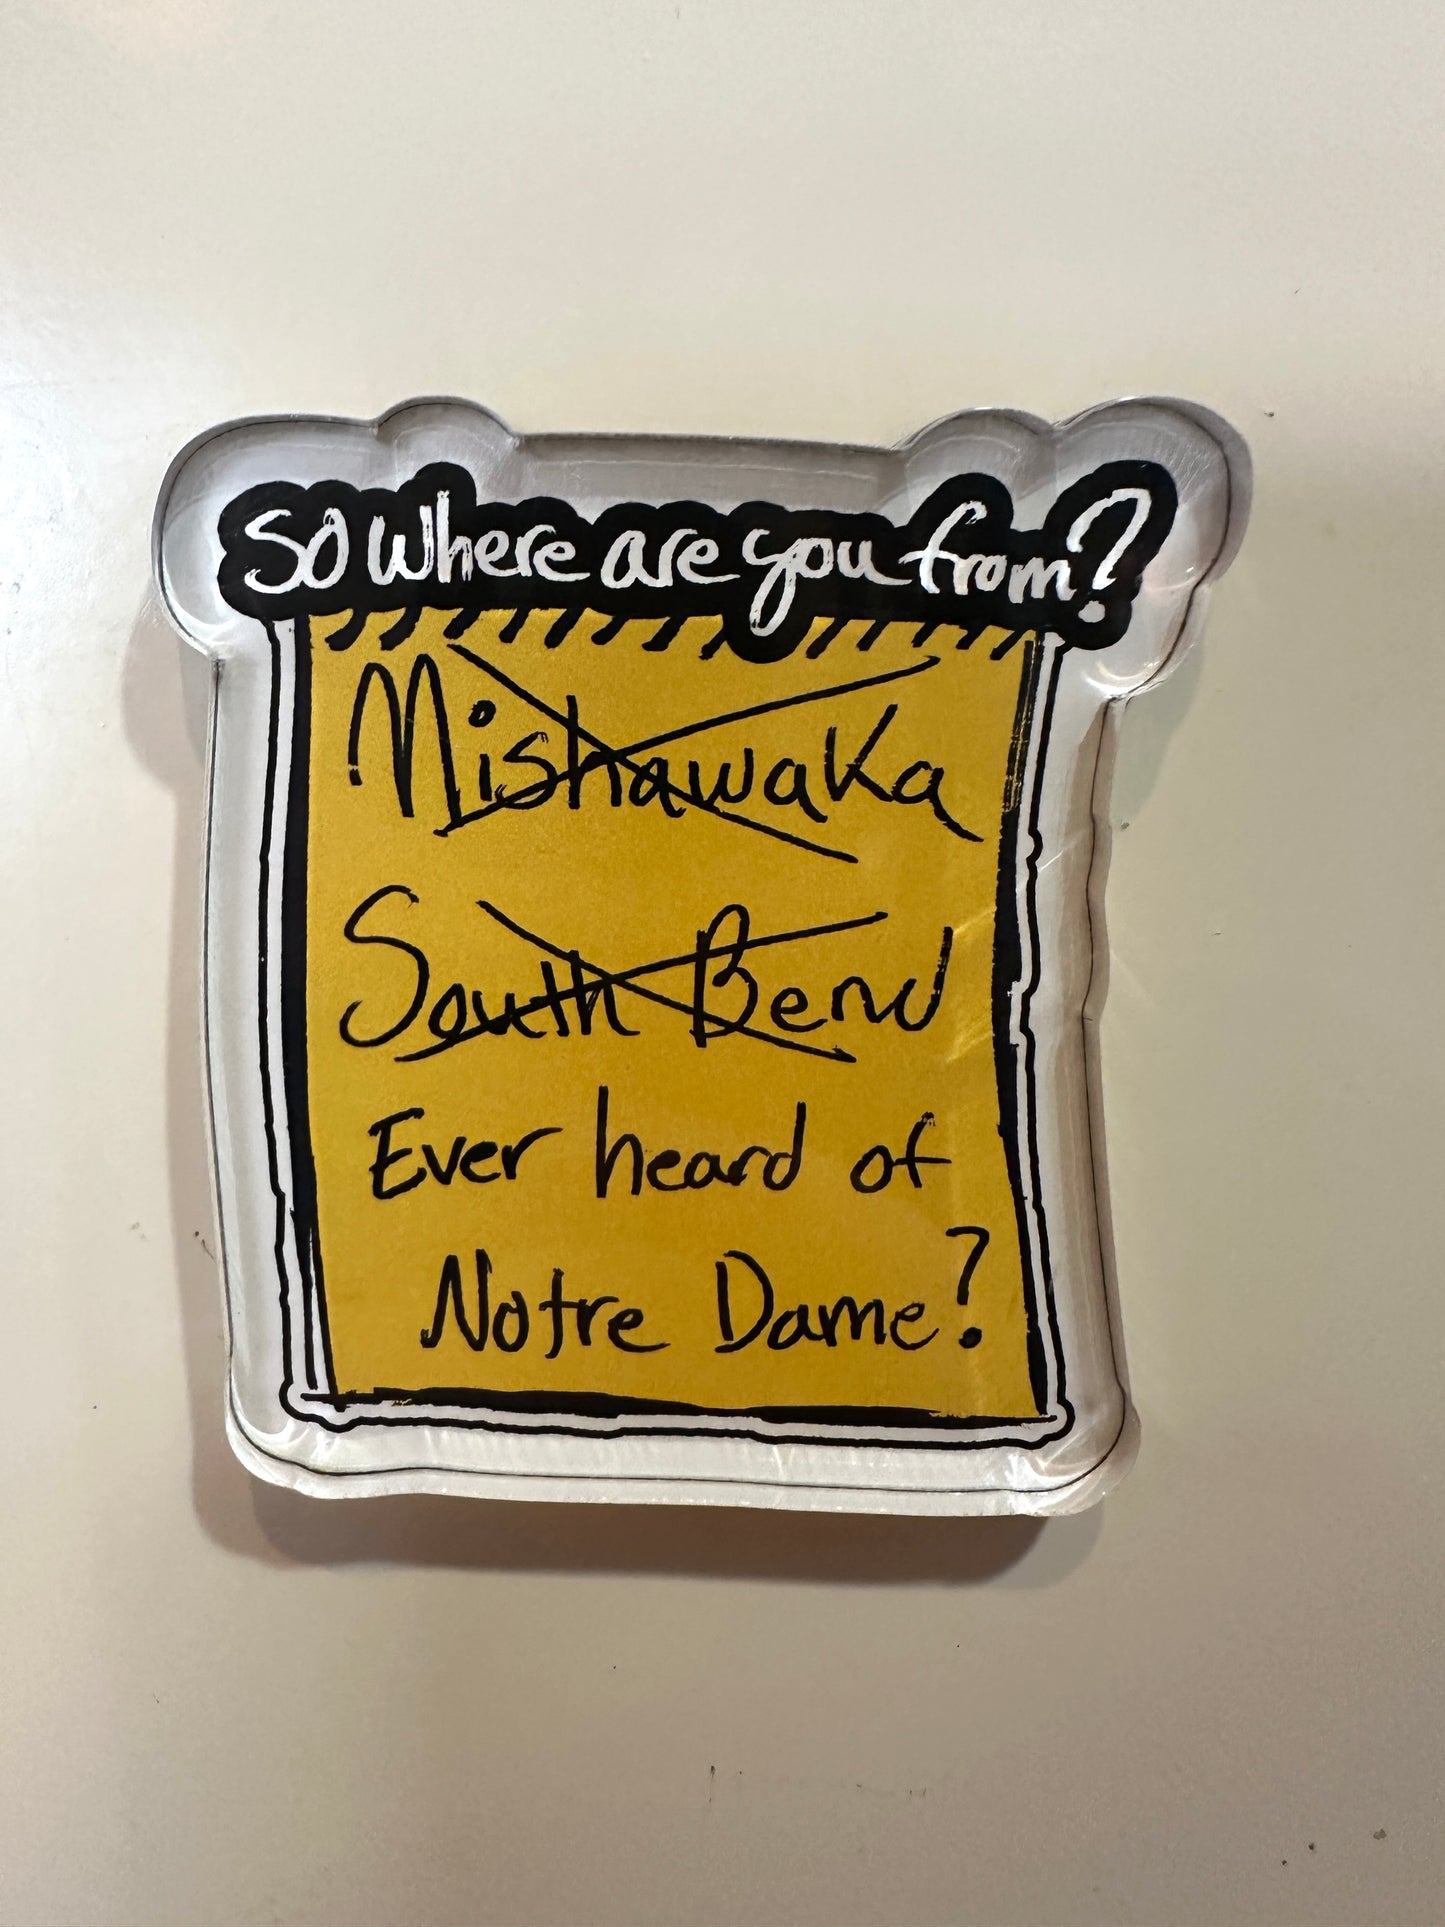 So where are you from?
Mishawaka
South Bend
Ever heard of
Notre Dame?